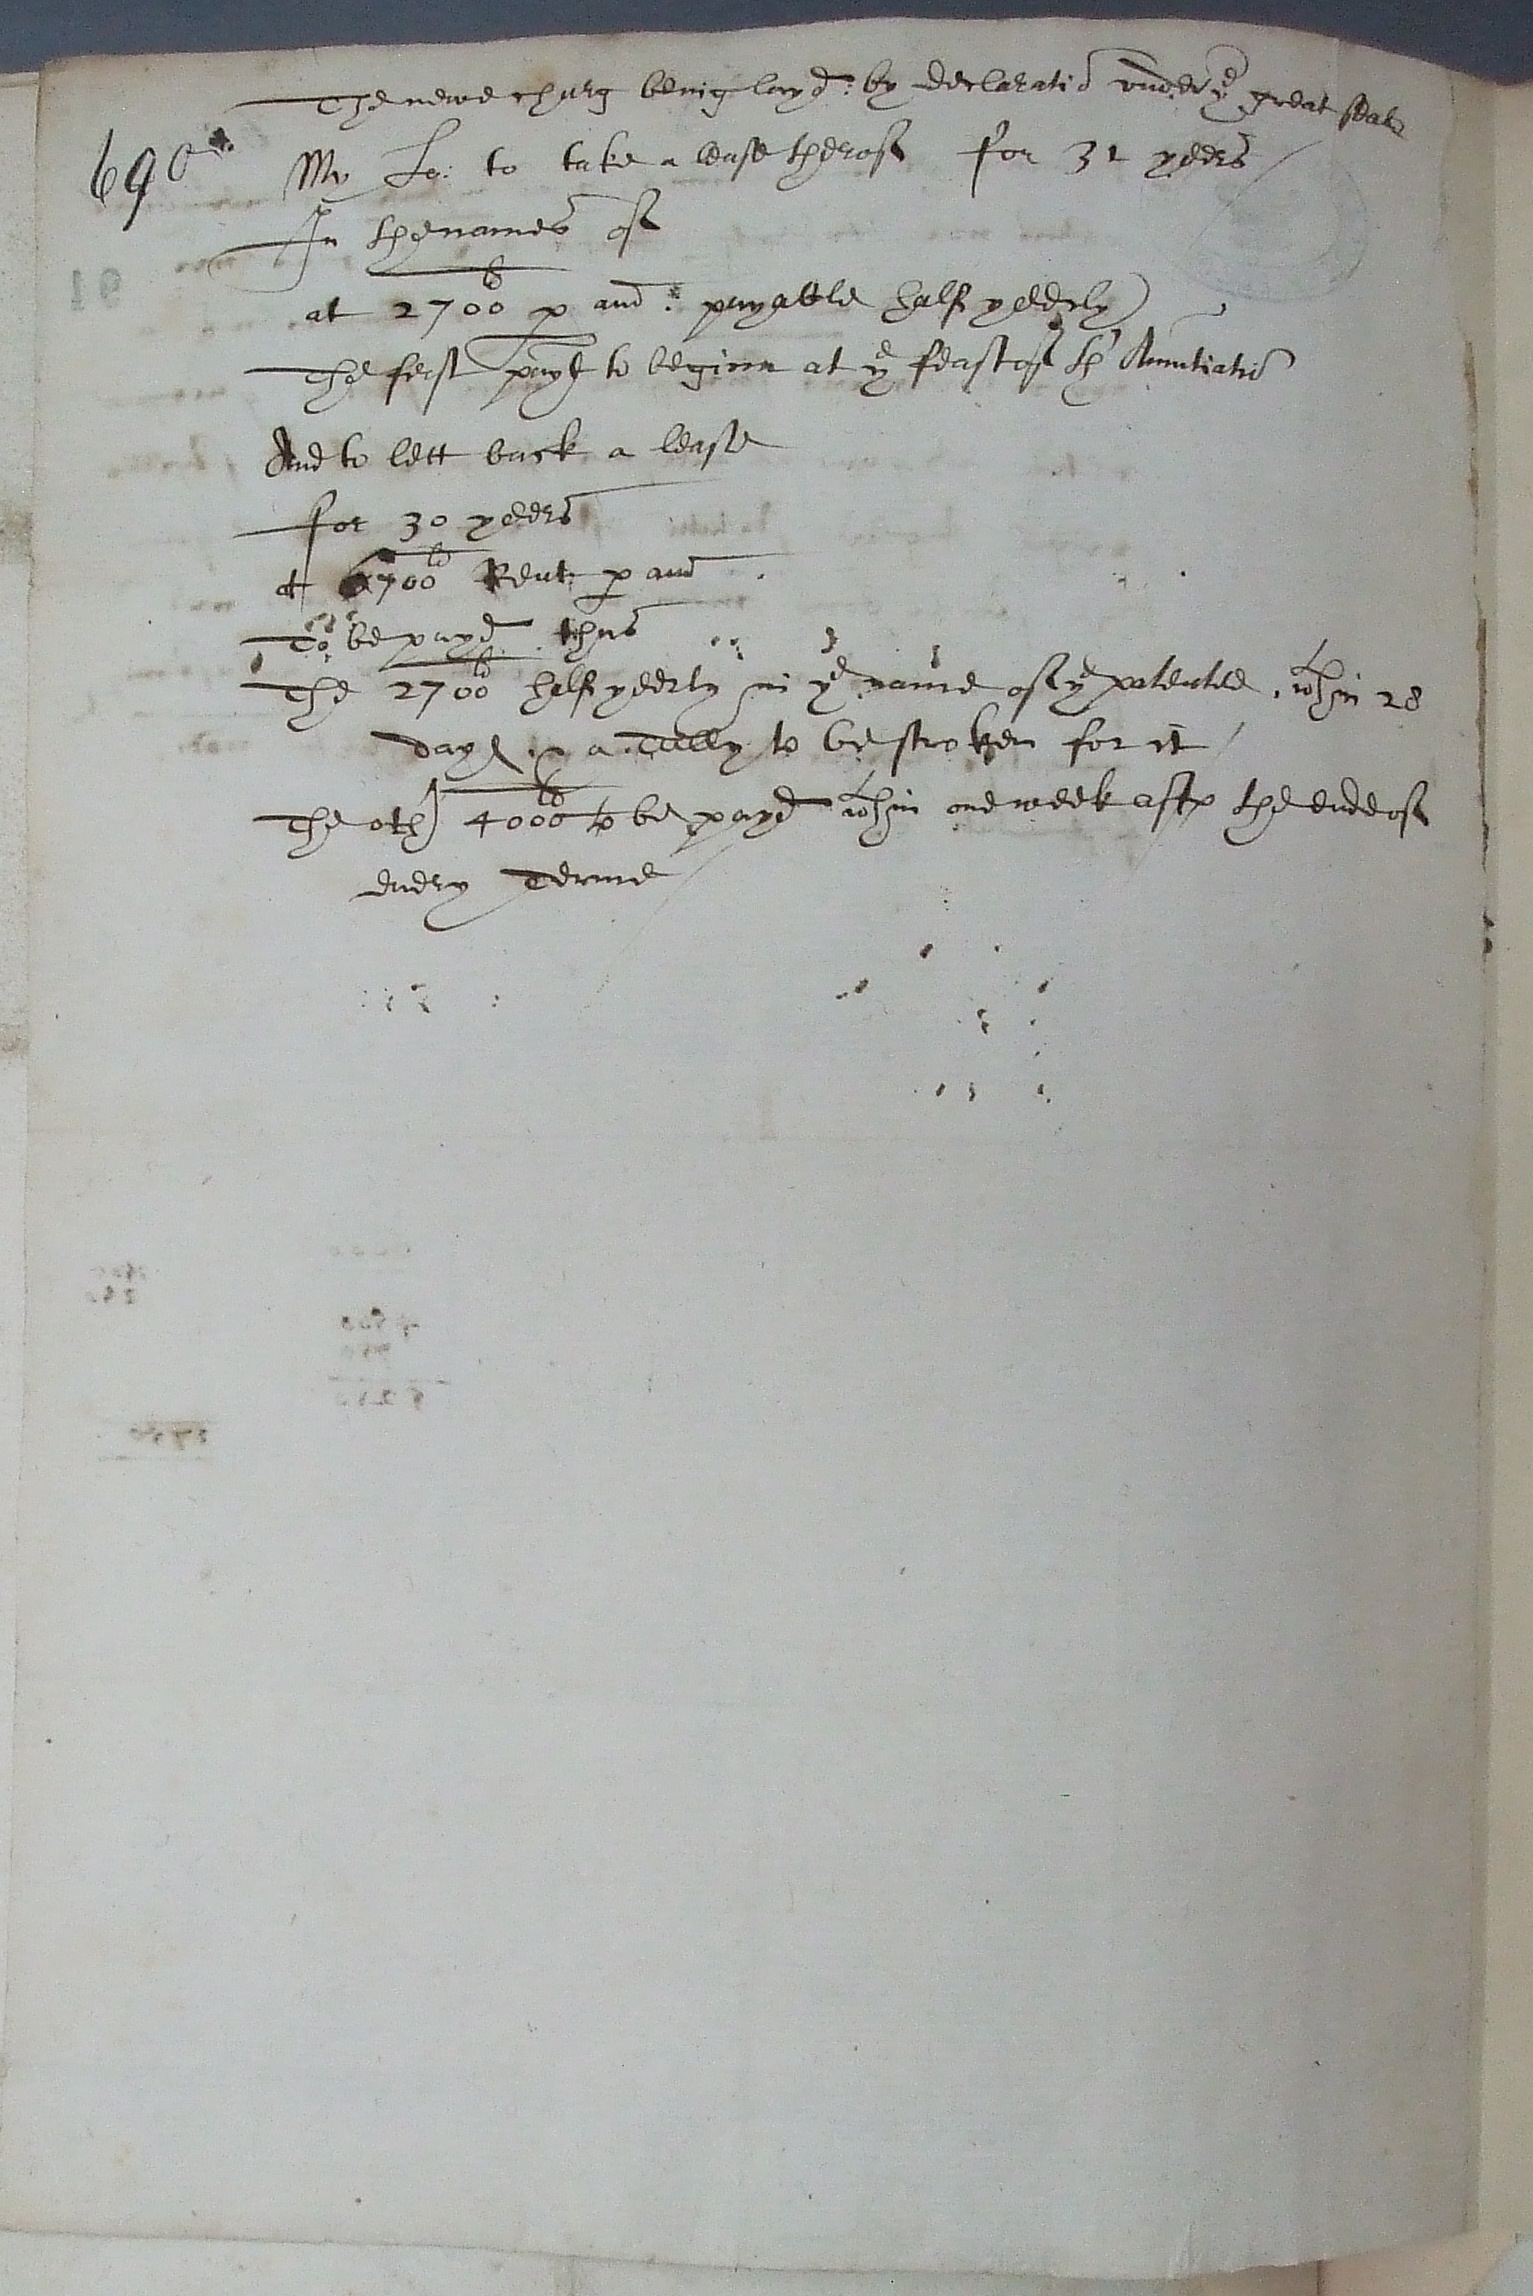 The newe charg being layd: by declaratiō vnder yͤ great seale
690 My Lo: to take a lease therof for 31 yeers
In the names of
at 2700ˡⁱ p ann: payable half yeerly
The first paye to beginn at yͤ feast of th' Anuntiatiō
And to lett back a lease
for 30 yeers
at 6700ˡⁱ Rent p ann.
To be payd thus
The 2700ˡⁱ half yeerly in yͤ name of yͤ patentee wᵗhin 28
dayes a Tally to be stroken for it
The other 4000ˡⁱ to be payd wᵗhin one week after the ende of
euery Terme